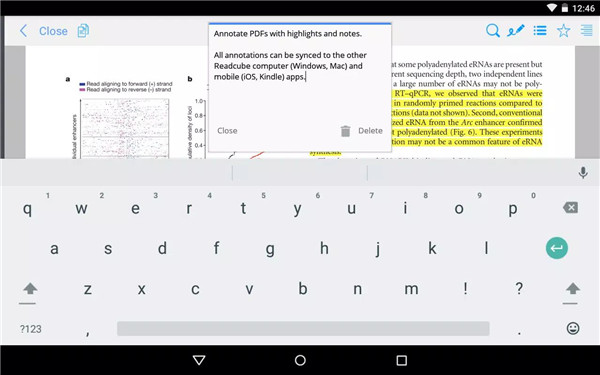 12:46
Close
Annotate PDFs with highlights and notes.
All annotations can be synced to the other
Readcube computer (Windows, Mac) and
mobile (iOS, Kindle) apps.
Close
Delete
a
Read aligning to forward (+) strand
Read aligning to reverse (–) strand
dividual enhancers
b
1.0
0.8
0.6
0.4
ulative density of loci
at some polyadenylated eRNAs are present but
rent sequencing depth, two independent lines
a large number of eRNAs may not be poly-
RT–qPCR, we observed that eRNAs were
in randomly primed reactions compared to
ctions (data not shown). Second, conventional
ized eRNA from the Arc enhancer confirmed
t polyadenylated (Fig. 6). These experiments
ation may not be a common feature of eRNA
synthesis.
1 2 3 4 5 6 7 8 9 0
q w e r t y u i o p
a s d f g h j k l
z x c v b n m ! ?
?123 , .